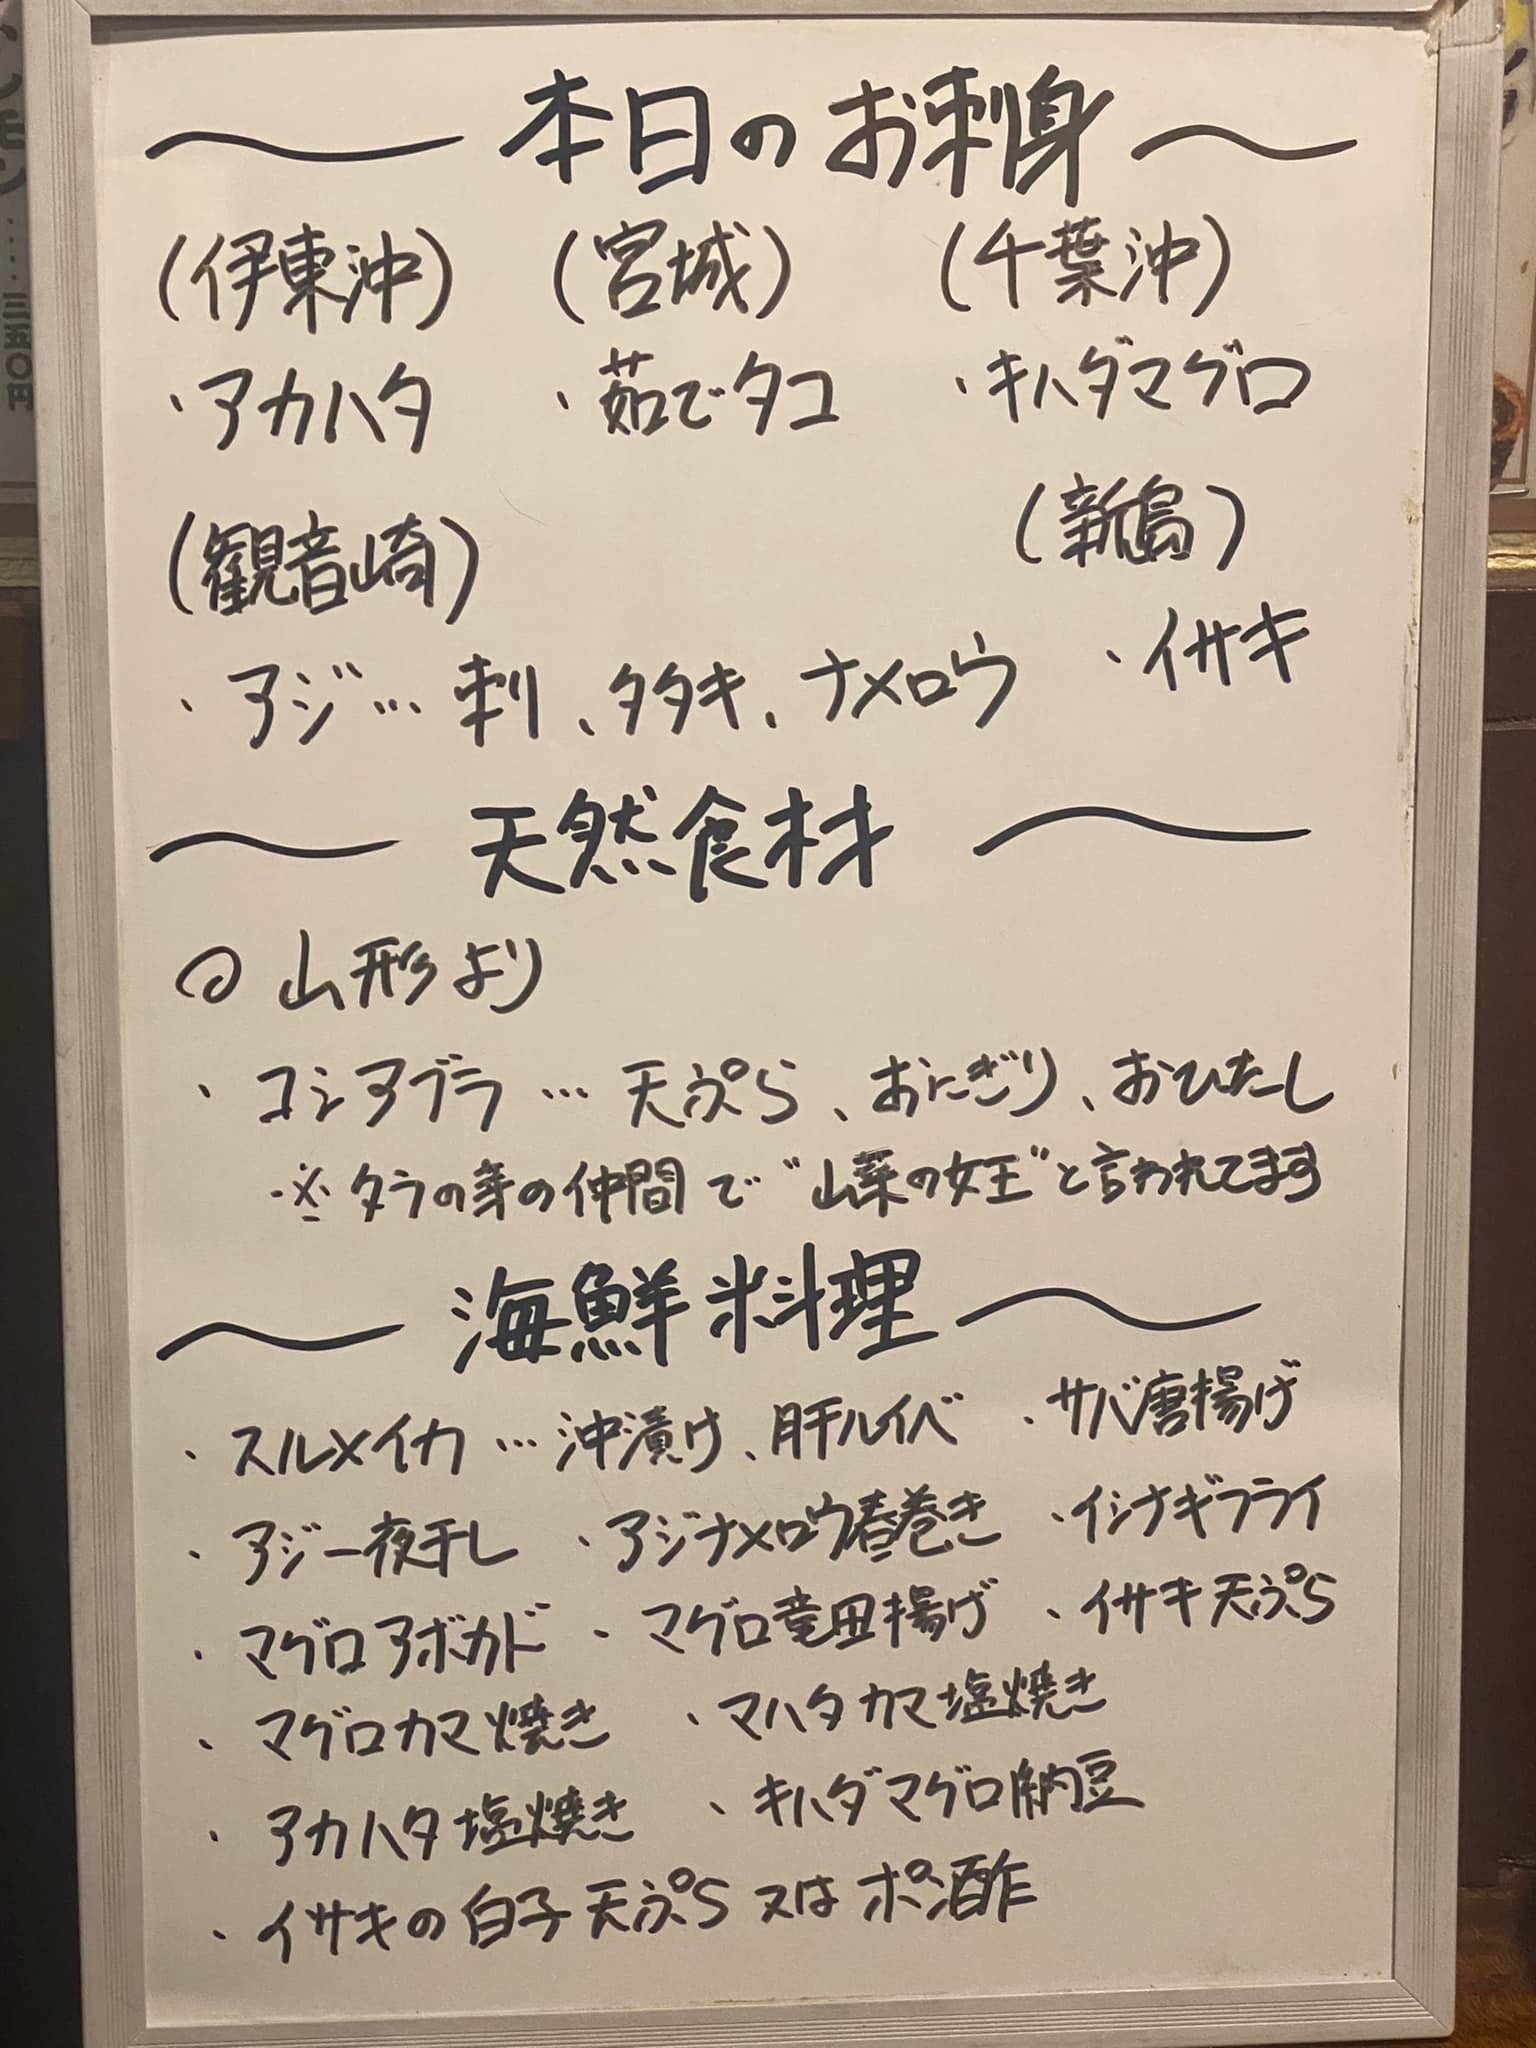 本日のお刺身
(伊東沖) (宮城) (千葉沖)
・アカハタ ・茹でタコ ・キハダマグロ
(観音崎) (新島)
・アジ… 刺、タタキ、ナメロウ ・イサキ
天然食材
◎ 山形より
・コシアブラ … 天ぷら、おにぎり、おひたーし
※タラの芽の仲間で"山菜の女王"と言われてます
海鮮料理
・スルメイカ … 沖漬け、肝ルイベ ・サバ唐揚げ
・アジ一夜干し ・アジナメロウ春巻き ・イシナギフライ
・マグロアボカド ・マグロ竜田揚げ ・イサキ天ぷら
・マグロカマ焼き ・マハタカマ塩焼き
・アカハタ塩焼き ・キハダマグロ納豆
・イサキの白子天ぷら又はポン酢